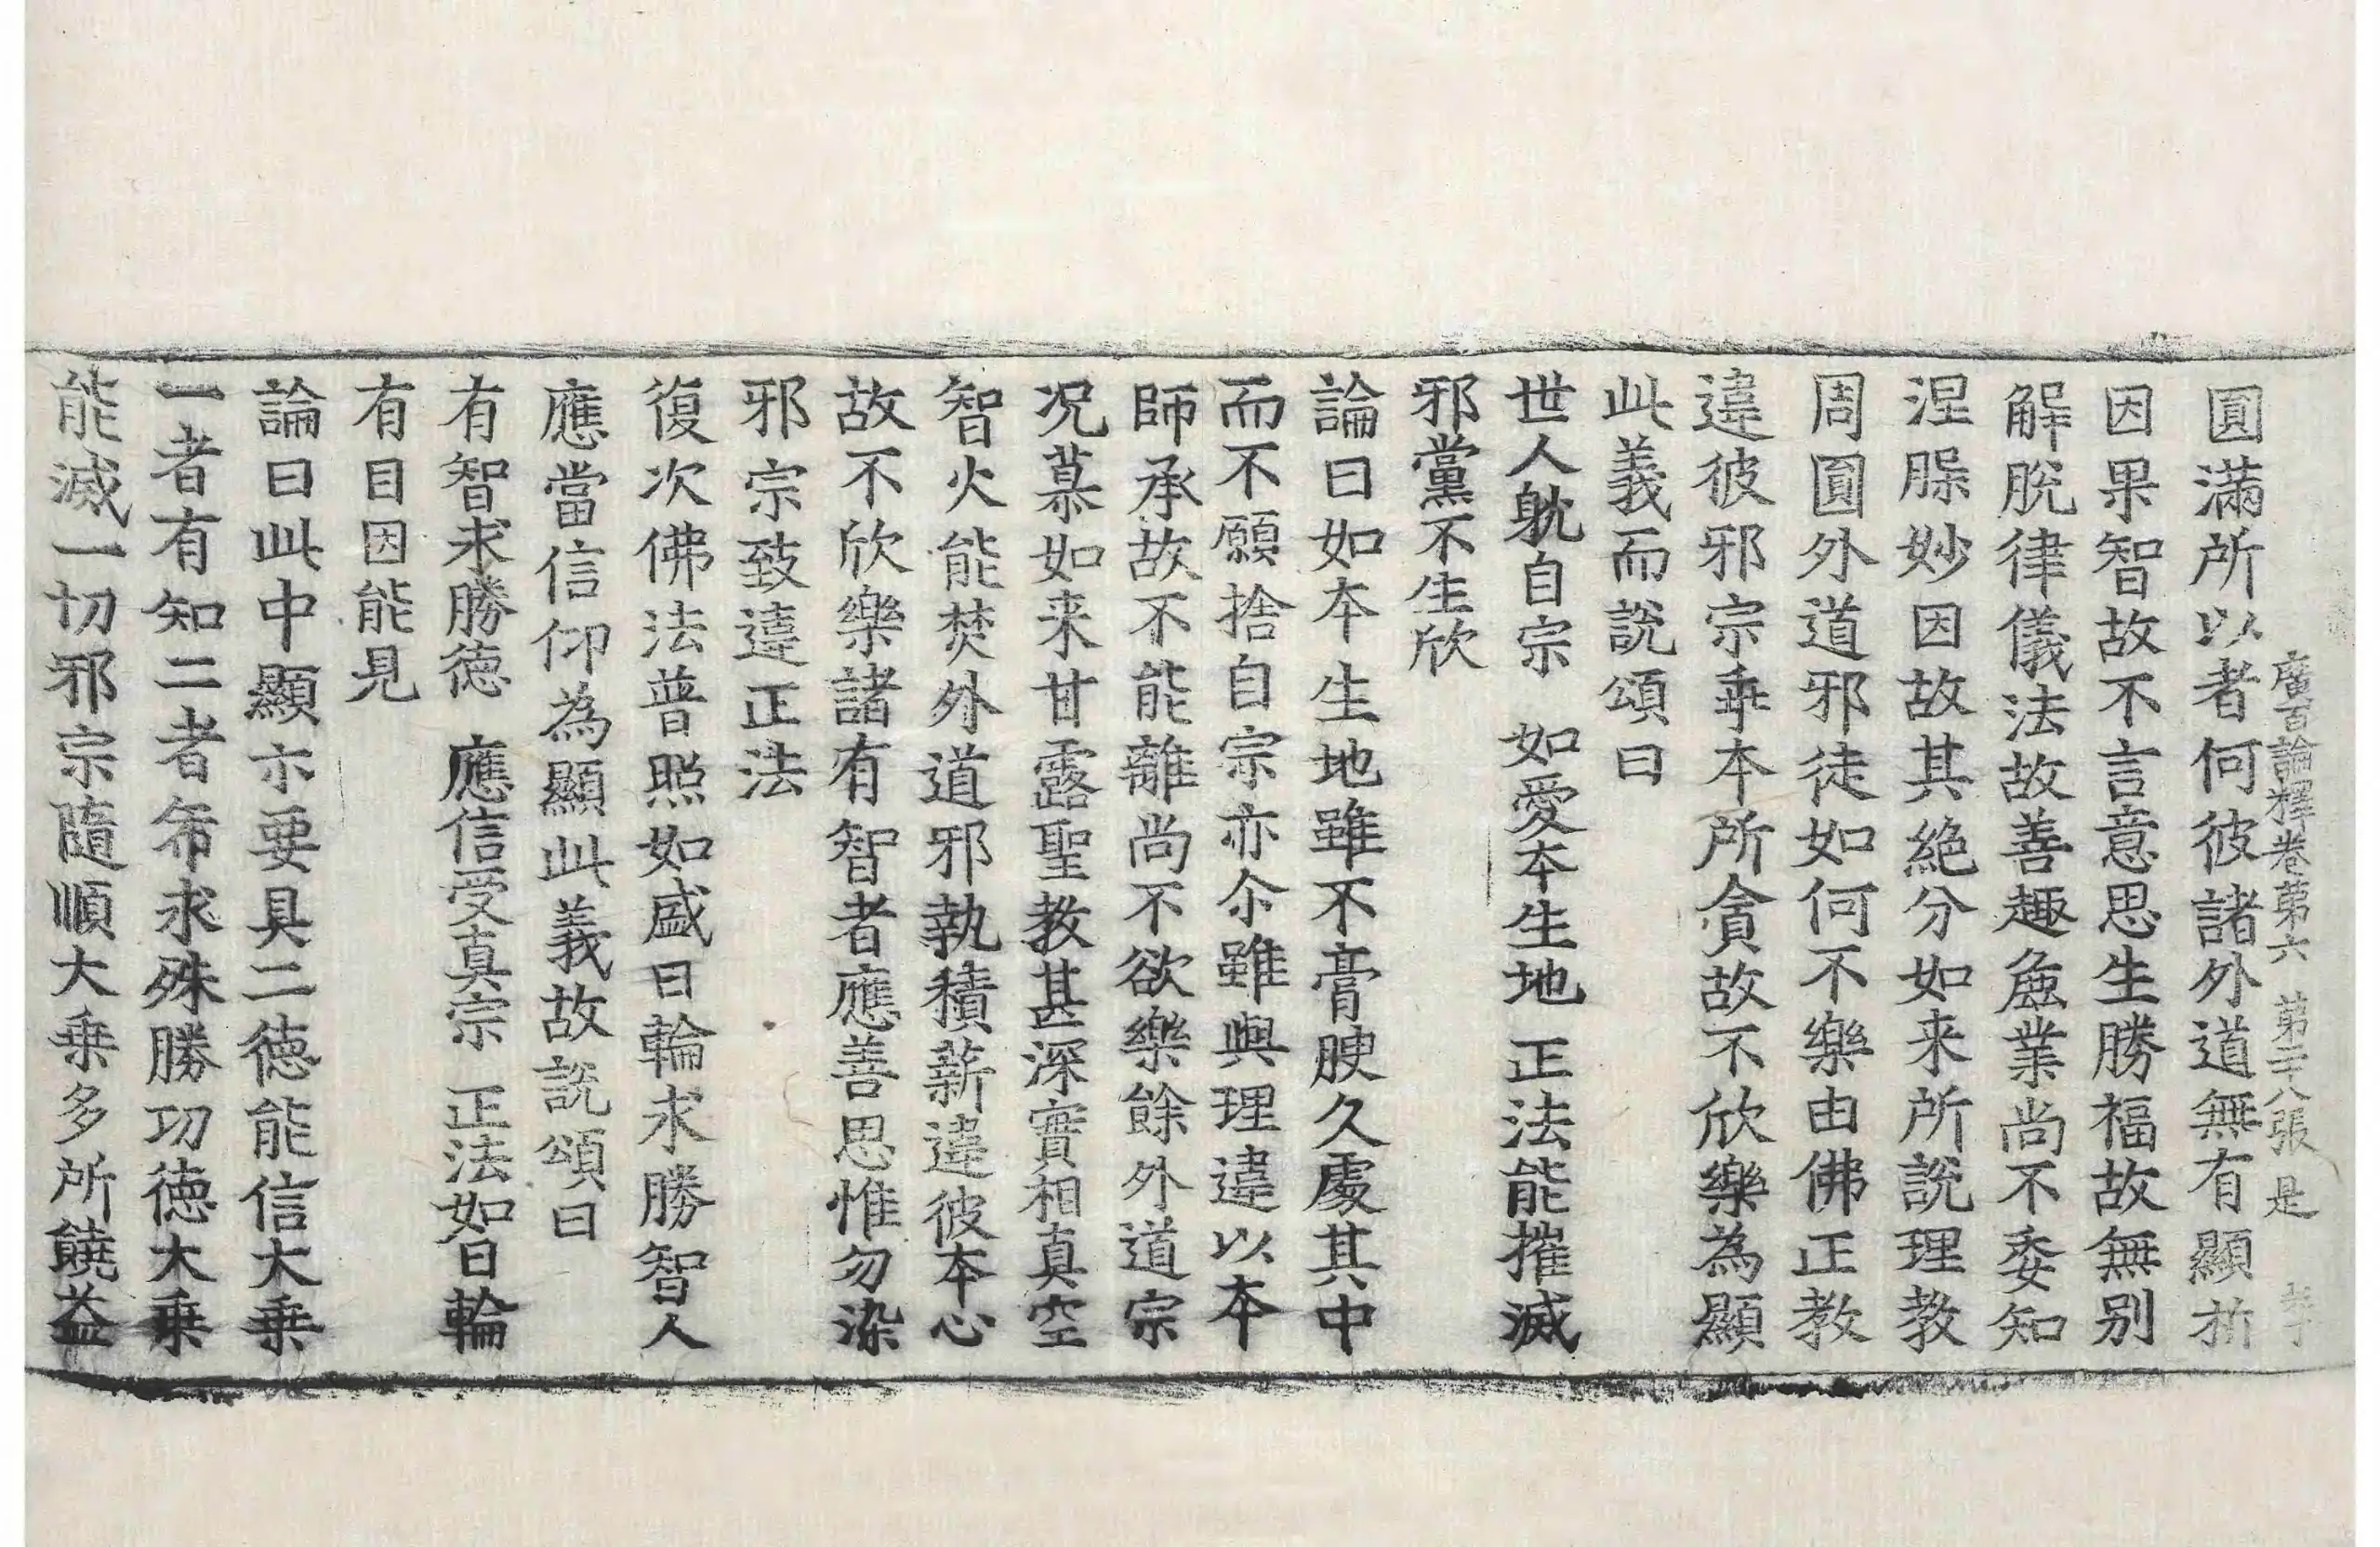 廣百論釋卷第六　第二十八張　是
圓滿所以者何彼諸外道無有顯析
因果智故不言意思生勝福故無別
解脫律儀法故善趣麁業尚不委知
涅槃妙因故其絕分如来所說理教
周圓外道邪徒如何不樂由佛正教
違彼邪宗乖本所貪故不欣樂為顯
此義而說頌曰
世人躭自宗　如愛本生地　正法能摧滅
邪黨不生欣
論曰如本生地雖不膏腴久處其中
而不願捨自宗亦尒雖與理違以本
師承故不能離尚不欲樂餘外道宗
况慕如来甘露聖教甚深實相真空
智火能焚外道邪執積薪違彼本心
故不欣樂諸有智者應善思惟勿染
邪宗致違正法
復次佛法普照如盛日輪求勝智人
應當信仰為顯此義故說頌曰
有智求勝德　應信受真宗　正法如日輪
有目因能見
論曰此中顯示要具二德能信大乗
一者有知二者希求殊勝功德大乗
能滅一切邪宗隨順大乗多所饒益